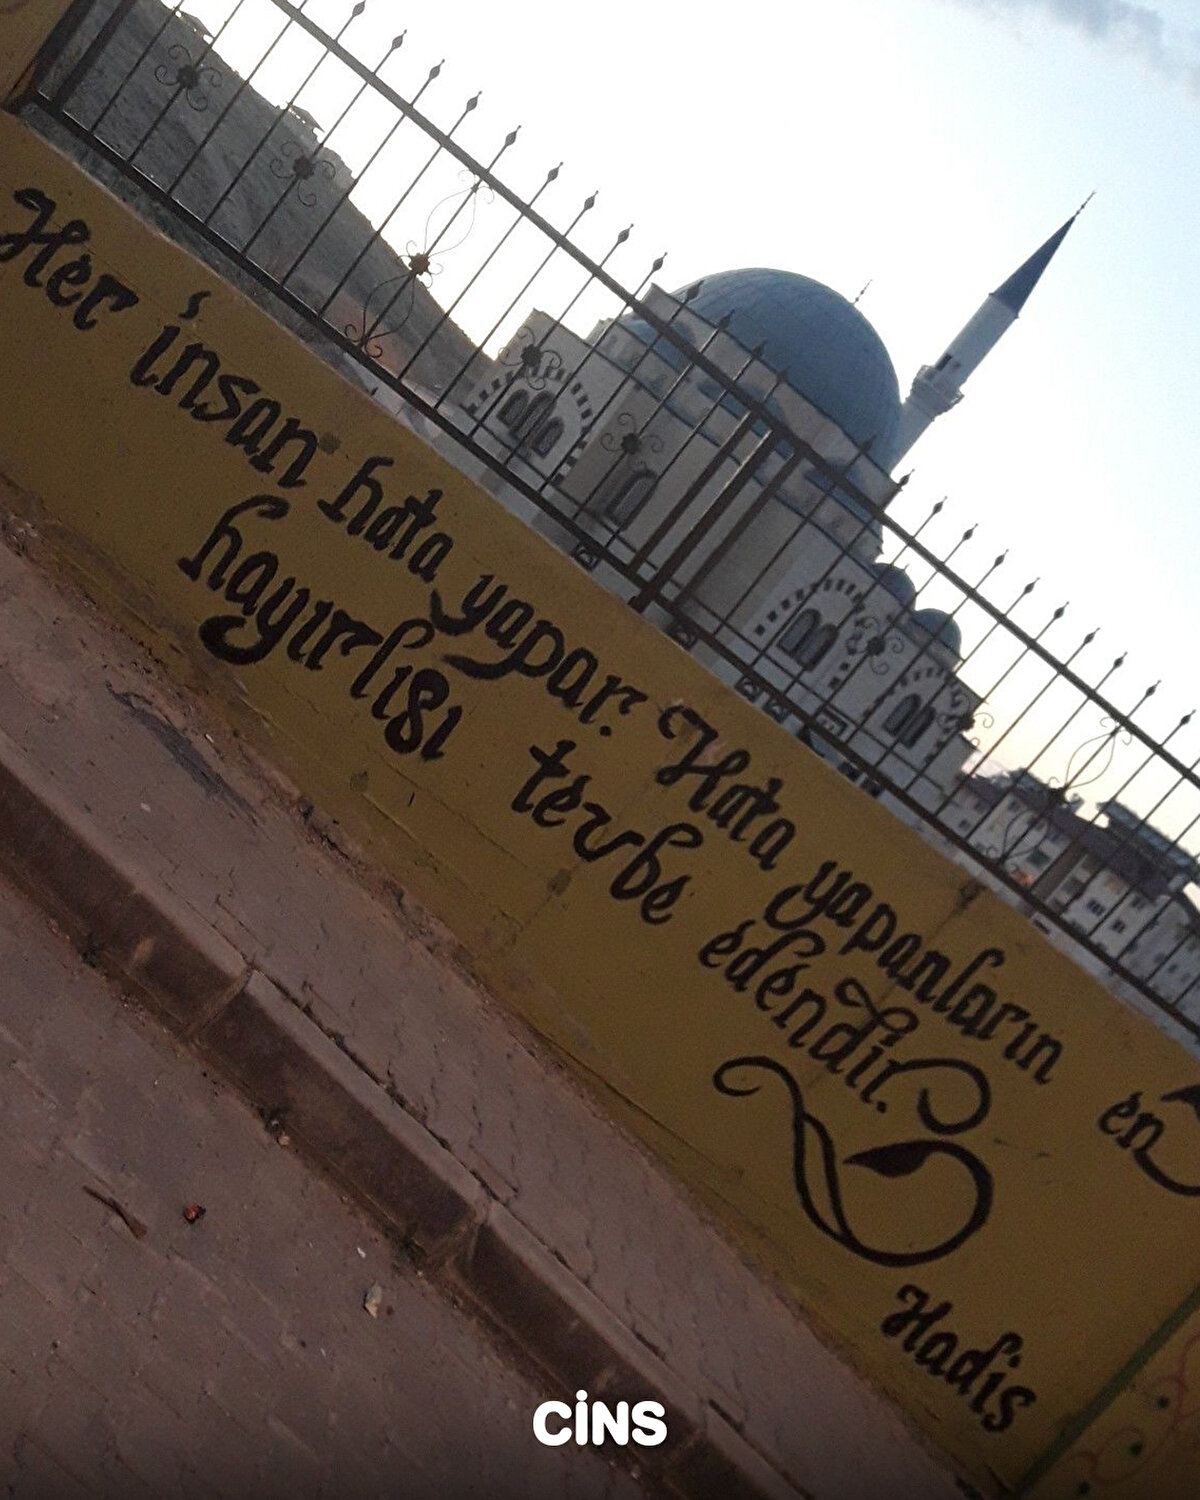 Her insan hata yapar. Hata yapanların en
hayırlısı tevbe edendir.
Hadis
CİNS